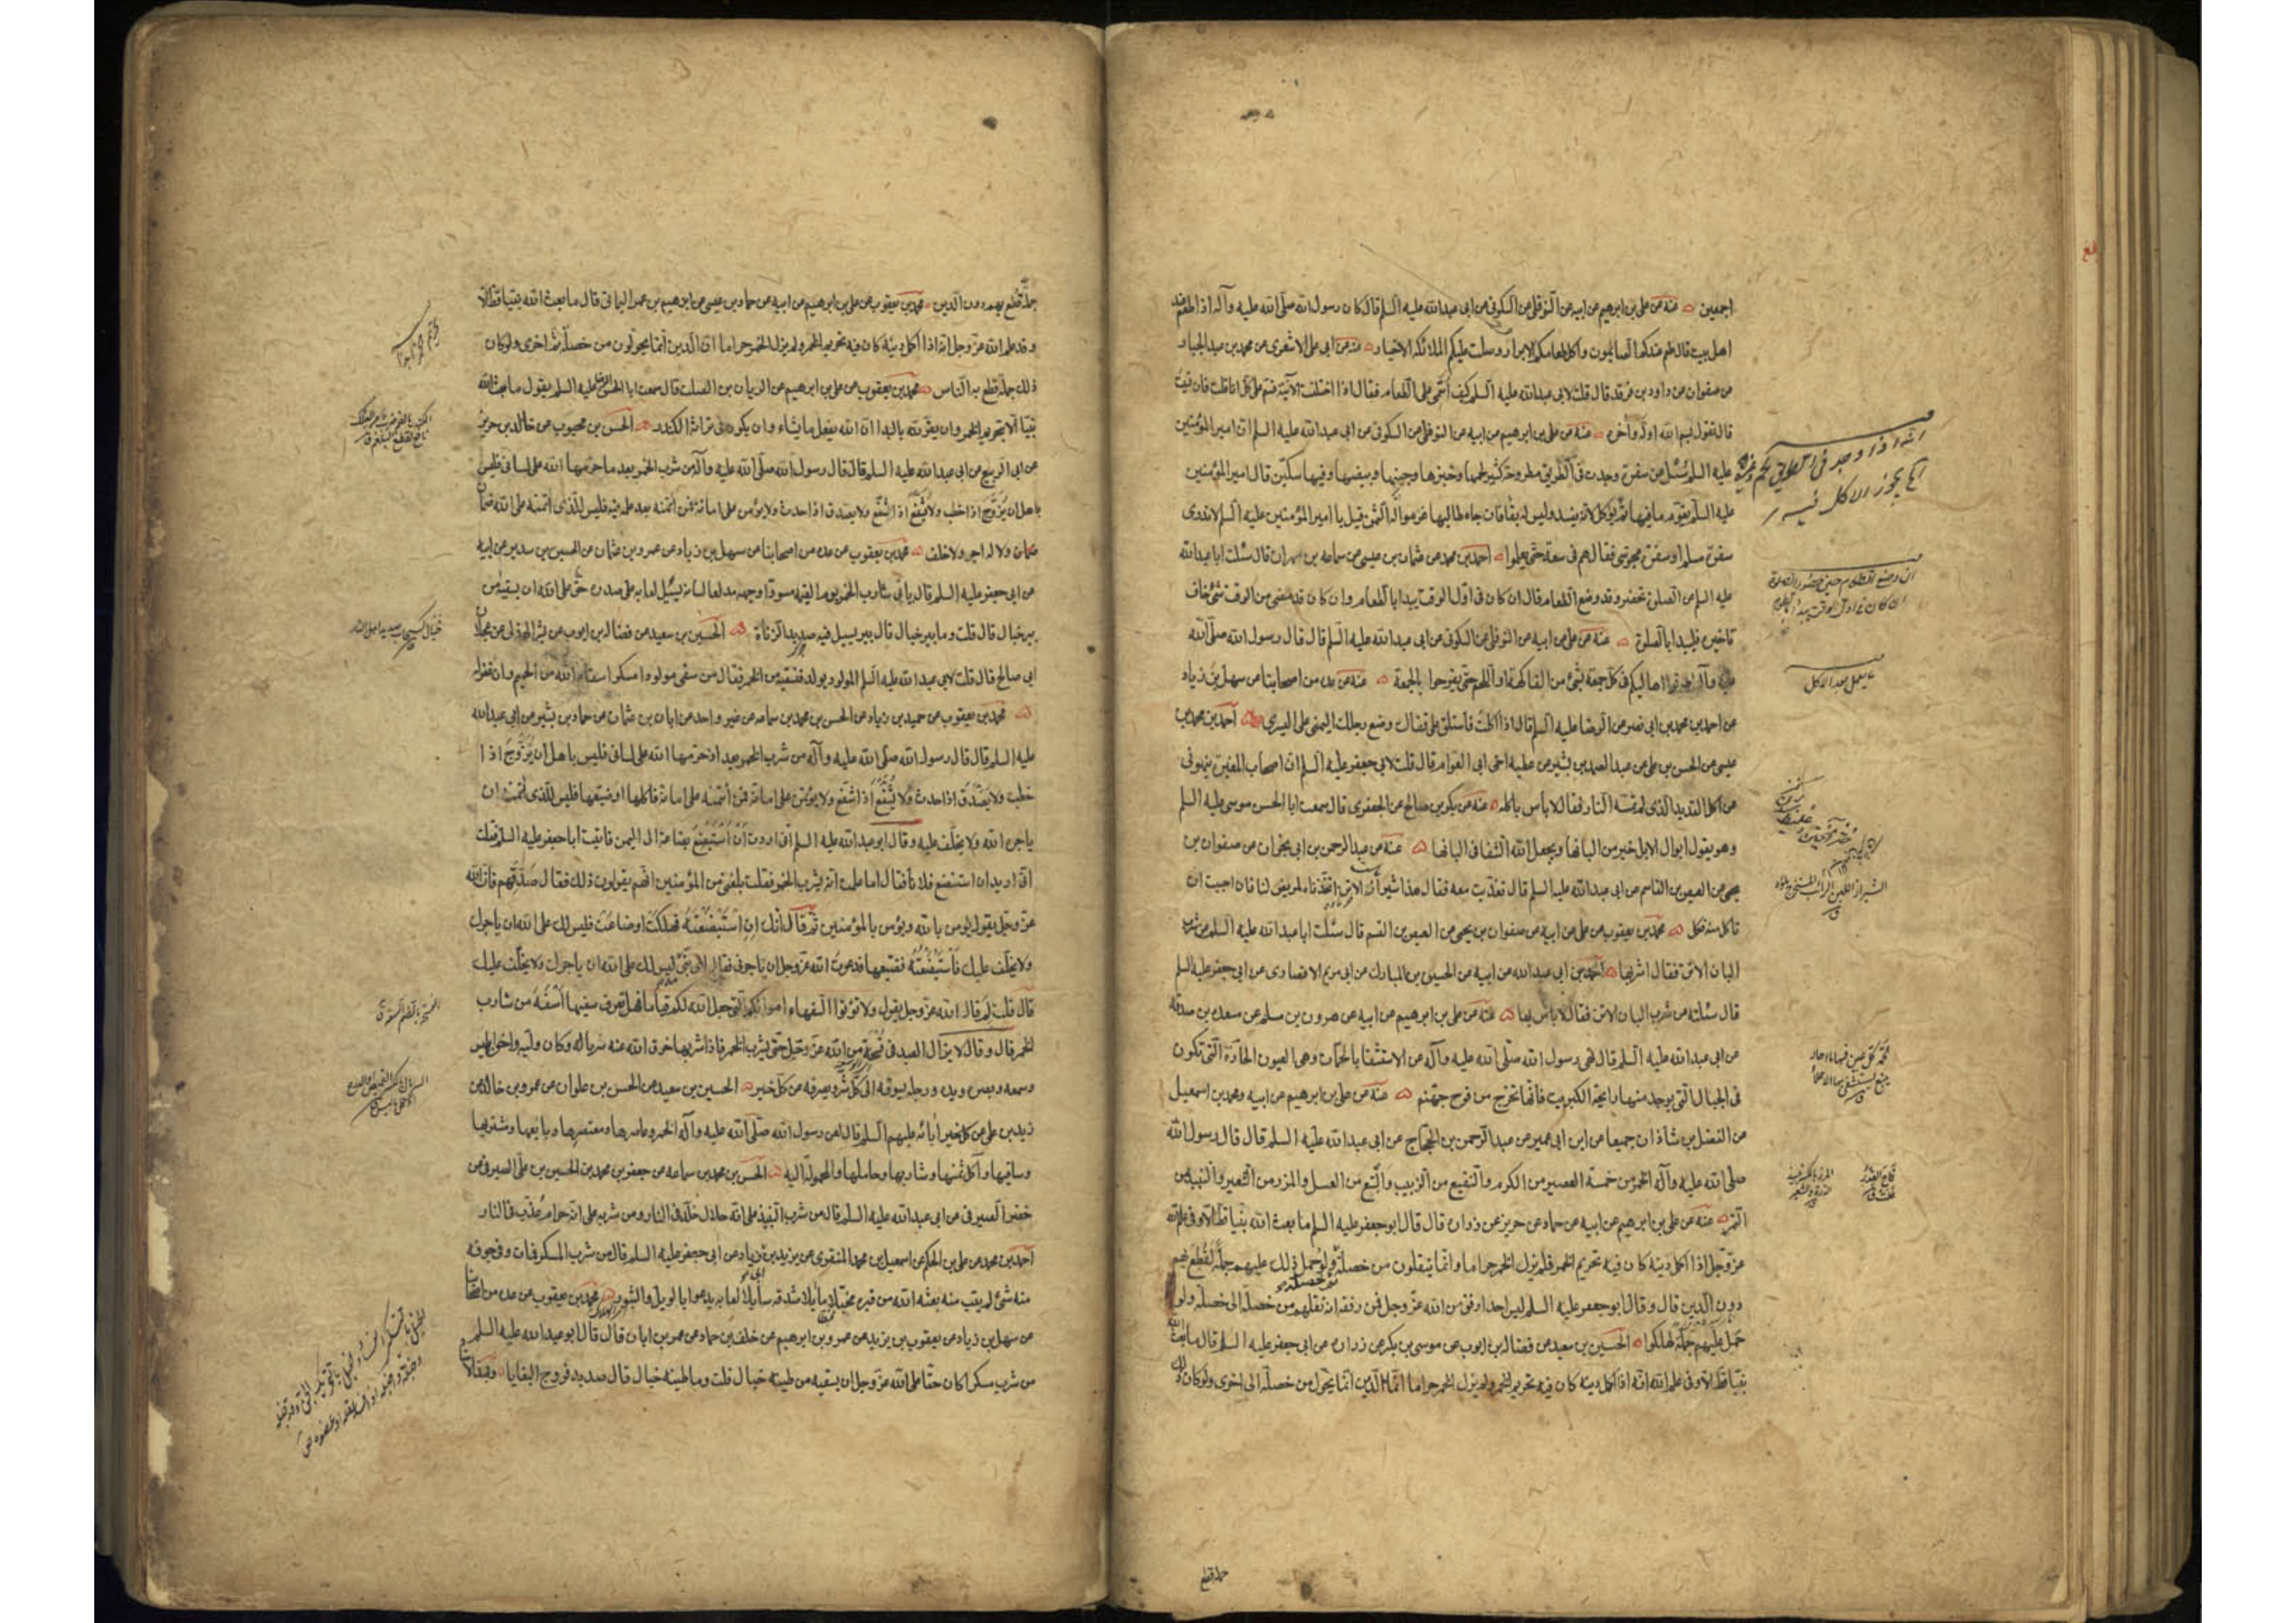 اجمعين عنه عن علي بن ابرهيم عن ابيه عن النوفلي عن السكوني عن ابي عبدالله عليه السلم قال كان رسول الله صلى الله عليه وآله اذا طعم عند
اهل بيت قال طعم عندكم الصائمون واكل طعامكم الابرار وصلت عليكم الملائكة الاخيار عنه عن ابي علي الاشعري عن محمد بن عبد الجبار
عن صفوان عن داود بن فرقد قال قلت لابي عبدالله عليه السلم كيف اسمي على الطعام فقال اذا اختلفت الآنية فسم على كل اناء قلت فان نسيت
قال تقول بسم الله اوله وآخره عنه عن علي بن ابرهيم عن ابيه عن النوفلي عن السكوني عن ابي عبدالله عليه السلم ان امير المؤمنين
عليه السلم سئل عن سفرة وجدت في الطريق مطروحة كثير لحمها وخبزها وجبنها وبيضها وفيها سكين قال امير المؤمنين
عليه السلم يقوم ما فيها ثم يؤكل لانه يفسد وليس له بقاء فان جاء طالبها غرموا له الثمن قيل يا امير المؤمنين عليه السلم لا ندري
سفرة مسلم او سفرة مجوسي فقال هم في سعة حتى يعلموا احمد بن محمد عن عثمان بن عيسى عن سماعه بن مهران قال سئلت ابا عبدالله
عليه السلم عن الصلوة تحضر وقد وضع الطعام قال ان كان في اول الوقت يبدا بالطعام وان كان قد مضى من الوقت شئ تخاف
تاخيره فليبدا بالصلوة عنه عن علي عن ابيه عن النوفلي عن السكوني عن ابي عبدالله عليه السلم قال قال رسول الله صلى الله
عليه وآله اطرفوا اهاليكم في كل جمعة بشئ من الفاكهة او اللحم حتى يفرحوا بالجمعة عنه عن عدة من اصحابنا عن سهل بن زياد
عن احمد بن محمد بن ابي نصر عن الرضا عليه السلم قال اذا اكلت فاستلق على قفاك وضع رجلك اليمنى على اليسرى احمد بن محمد بن
عيسى عن الحسن بن علي عن عبد الصمد بن بشير عن عطية اخي ابي العوام قال قلت لابي جعفر عليه السلم ان اصحاب المغيرة ينهوني
عن اكل القديد الذي لم تمسه النار فقال لا باس باكله عنه عن بكر بن صالح عن الجعفري قال سمعت ابا الحسن موسى عليه السلم
وهو يقول ابوال الابل خير من البانها ويجعل الله الشفا في البانها عنه عن عبد الرحمن بن ابي نجران عن صفوان بن
يحيى عن العيص بن القاسم عن ابي عبدالله عليه السلم قال تغذيت معه فقال هذا شيراز الاتن اتخذناه لمريض لنا فان احببت ان
تاكل منه فكل محمد بن يعقوب عن علي عن ابيه عن صفوان بن يحيى عن العيص بن القسم قال سئلت ابا عبدالله عليه السلم عن شرب
البان الاتن فقال اشربها احمد بن ابي عبدالله عن ابيه عن الحسين بن المبارك عن ابي مريم الانصاري عن ابي جعفر عليه السلم
قال سئلته عن شرب البان الاتن فقال لا باس بها عنه عن علي بن ابرهيم عن ابيه عن هرون بن مسلم عن مسعدة بن صدقة
عن ابي عبدالله عليه السلم قال نهى رسول الله صلى الله عليه وآله عن الاستشفا بالحمات وهي العيون الحارة التي تكون
في الجبال التي يوجد منها رايحة الكبريت فانها تخرج من فوح جهنم عنه عن علي بن ابرهيم عن ابيه ومحمد بن اسمعيل
عن الفضل بن شاذان جميعا عن ابن ابي عمير عن عبد الرحمن بن الحجاج عن ابي عبدالله عليه السلم قال قال رسول الله
صلى الله عليه وآله الخمر من خمسة العصير من الكرم والنقيع من الزبيب والبتع من العسل والمزر من الشعير والنبيذ من
التمر عنه عن علي بن ابرهيم عن ابيه عن حماد عن حريز عن زرارة قال قال ابو جعفر عليه السلم ما بعث الله نبيا قط الا وفي علم الله
عز وجل اذا اكمل دينه كان فيه تحريم الخمر فلم يزل الخمر حراما وانما ينقلون من خصلة ولو حمل ذلك عليهم جملة لقطع بهم
دون الدين قال وقال ابو جعفر عليه السلم ليس احد ارفق من الله عز وجل فمن رفقه انه نقلهم من خصلة الى خصلة ولو
حمل عليهم جملة لهلكوا الحسين بن سعيد عن فضالة بن ايوب عن موسى بن بكر عن زرارة عن ابي جعفر عليه السلم قال ما بعث الله
نبيا قط الا وفي علم الله انه اذا اكمل دينه كان فيه تحريم الخمر ولم يزل الخمر حراما انما الدين انما يحول من خصلة الى اخرى ولو كان ذلك
جملة قطع
انه اذا وجد في الطريق لحم وغيره
يجوز الاكل منه
ان وضع الطعام حين حضور الصلوة
ان كان في اول الوقت يبدأ بالطعام
ما يعمل بعد الاكل
جملة قطع بهم دون الدين محمد بن يعقوب عن علي بن ابرهيم عن ابيه عن حماد بن عيسى عن ابرهيم بن عمر اليماني قال ما بعث الله نبيا قط الا
وقد علم الله عز وجل انه اذا اكمل دينه كان فيه تحريم الخمر ولم يزل الخمر حراما ان الدين انما يحولون من خصلة ثم اخرى ولو كان
ذلك جملة قطع به الناس محمد بن يعقوب عن علي بن ابرهيم عن الريان بن الصلت قال سمعت ابا الحسن الرضا عليه السلم يقول ما بعث الله
نبيا الا بتحريم الخمر وان يقر لله بالبدا ان الله يفعل ما يشاء وان يكون في تراثه الكندر الحسن بن محبوب عن خالد بن جرير
عن ابي الربيع عن ابي عبدالله عليه السلم قال قال رسول الله صلى الله عليه وآله من شرب الخمر بعد ما حرمها الله على لساني فليس
باهل ان يزوج اذا خطب ولا يشفع اذا شفع ولا يصدق اذا حدث ولا يؤتمن على امانة فمن ائتمنه بعد علمه فيه فليس للذي ائتمنه على الله ضمان
ضمان ولا له اجر ولا خلف محمد بن يعقوب عن عدة من اصحابنا عن سهل بن زياد عن عمرو بن عثمان عن الحسين بن سدير عن ابيه
عن ابي جعفر عليه السلم قال ياتي شارب الخمر يوم القيمة مسودا وجهه مدلعا لسانه يسيل لعابه على صدره حق على الله ان يسقيه من
بير خبال قال قلت وما بير خبال قال بير يسيل فيه صديد الزناة الحسين بن سعيد عن فضالة بن ايوب عن بشر الهذلي عن عجلان
ابي صالح قال قلت لابي عبدالله عليه السلم المولود يولد فنسقيه من الخمر فقال من سقى مولودا مسكرا سقاه الله من الحميم وان غفر له
محمد بن يعقوب عن حميد بن زياد عن الحسن بن محمد بن سماعه عن غير واحد عن ابان بن عثمان عن حماد بن بشير عن ابي عبدالله
عليه السلم قال قال رسول الله صلى الله عليه وآله من شرب الخمر بعد اذ حرمها الله على لساني فليس باهل ان يزوج اذا
خطب ولا يصدق اذا حدث ولا يشفع اذا شفع ولا يؤتمن على امانة فمن ائتمنه على امانة فاكلها او ضيعها فليس للذي ائتمنه ان
ياجره الله ولا يخلف عليه وقال ابو عبدالله عليه السلم اني اردت ان استبضع بضاعة الى اليمن فاتيت ابا جعفر عليه السلم فقلت
اني اريد ان استبضع فلانا فقال اما علمت انه يشرب الخمر فقلت بلغني من المؤمنين انهم يقولون ذلك فقال صدقهم فان الله
عز وجل يقول يؤمن بالله ويؤمن بالمؤمنين ثم قال انك ان استبضعته فهلكت او ضاعت فليس لك على الله ان ياجرك
ولا يخلف عليك فاستبضعته فضيعها فدعوت الله عز وجل ان ياجرني فقال اي بني ليس لك على الله ان ياجرك ولا يخلف عليك
قال قلت لم قال ان الله عز وجل يقول ولا تؤتوا السفهاء اموالكم التي جعل الله لكم قياما فهل تعرف سفيها اسفه من شارب
الخمر قال وقال لا يزال العبد في فسحة من الله عز وجل حتى يشرب الخمر فاذا شربها خرق الله عنه سرباله وكان وليه واخوه ابليس
وسمعه وبصره ويده ورجله يسوقه الى كل شر ويصرفه عن كل خير الحسين بن سعيد عن الحسن بن علوان عن عمرو بن خالد عن
زيد بن علي عن آبائه عليهم السلم قال لعن رسول الله صلى الله عليه وآله الخمر وعاصرها ومعتصرها وبايعها ومشتريها
وساقيها وآكل ثمنها وشاربها وحاملها والمحمولة اليه الحسن بن محمد بن سماعه عن جعفر بن محمد بن الحسين بن علي الصيرفي عن
خضر الصيرفي عن ابي عبدالله عليه السلم قال من شرب النبيذ على انه حلال خلد في النار ومن شربه على انه حرام عذب في النار
احمد بن محمد عن علي بن الحكم عن اسمعيل بن محمد المنقري عن يزيد بن زياد عن ابي جعفر عليه السلم قال من شرب المسكر فمات وفي جوفه
منه شئ لم يتب منه بعثه الله من قبره مخبلا مايلا شدقه سايلا لعابه يدعو بالويل والثبور محمد بن يعقوب عن عدة من اصحابنا
عن سهل بن زياد عن يعقوب بن يزيد عن عمرو بن ابرهيم عن خلف بن حماد عن عمر بن ابان قال قال ابو عبدالله عليه السلم
من شرب مسكرا كان حقا على الله عز وجل ان يسقيه من طينة خبال قلت وما طينة خبال قال صديد فروج البغايا